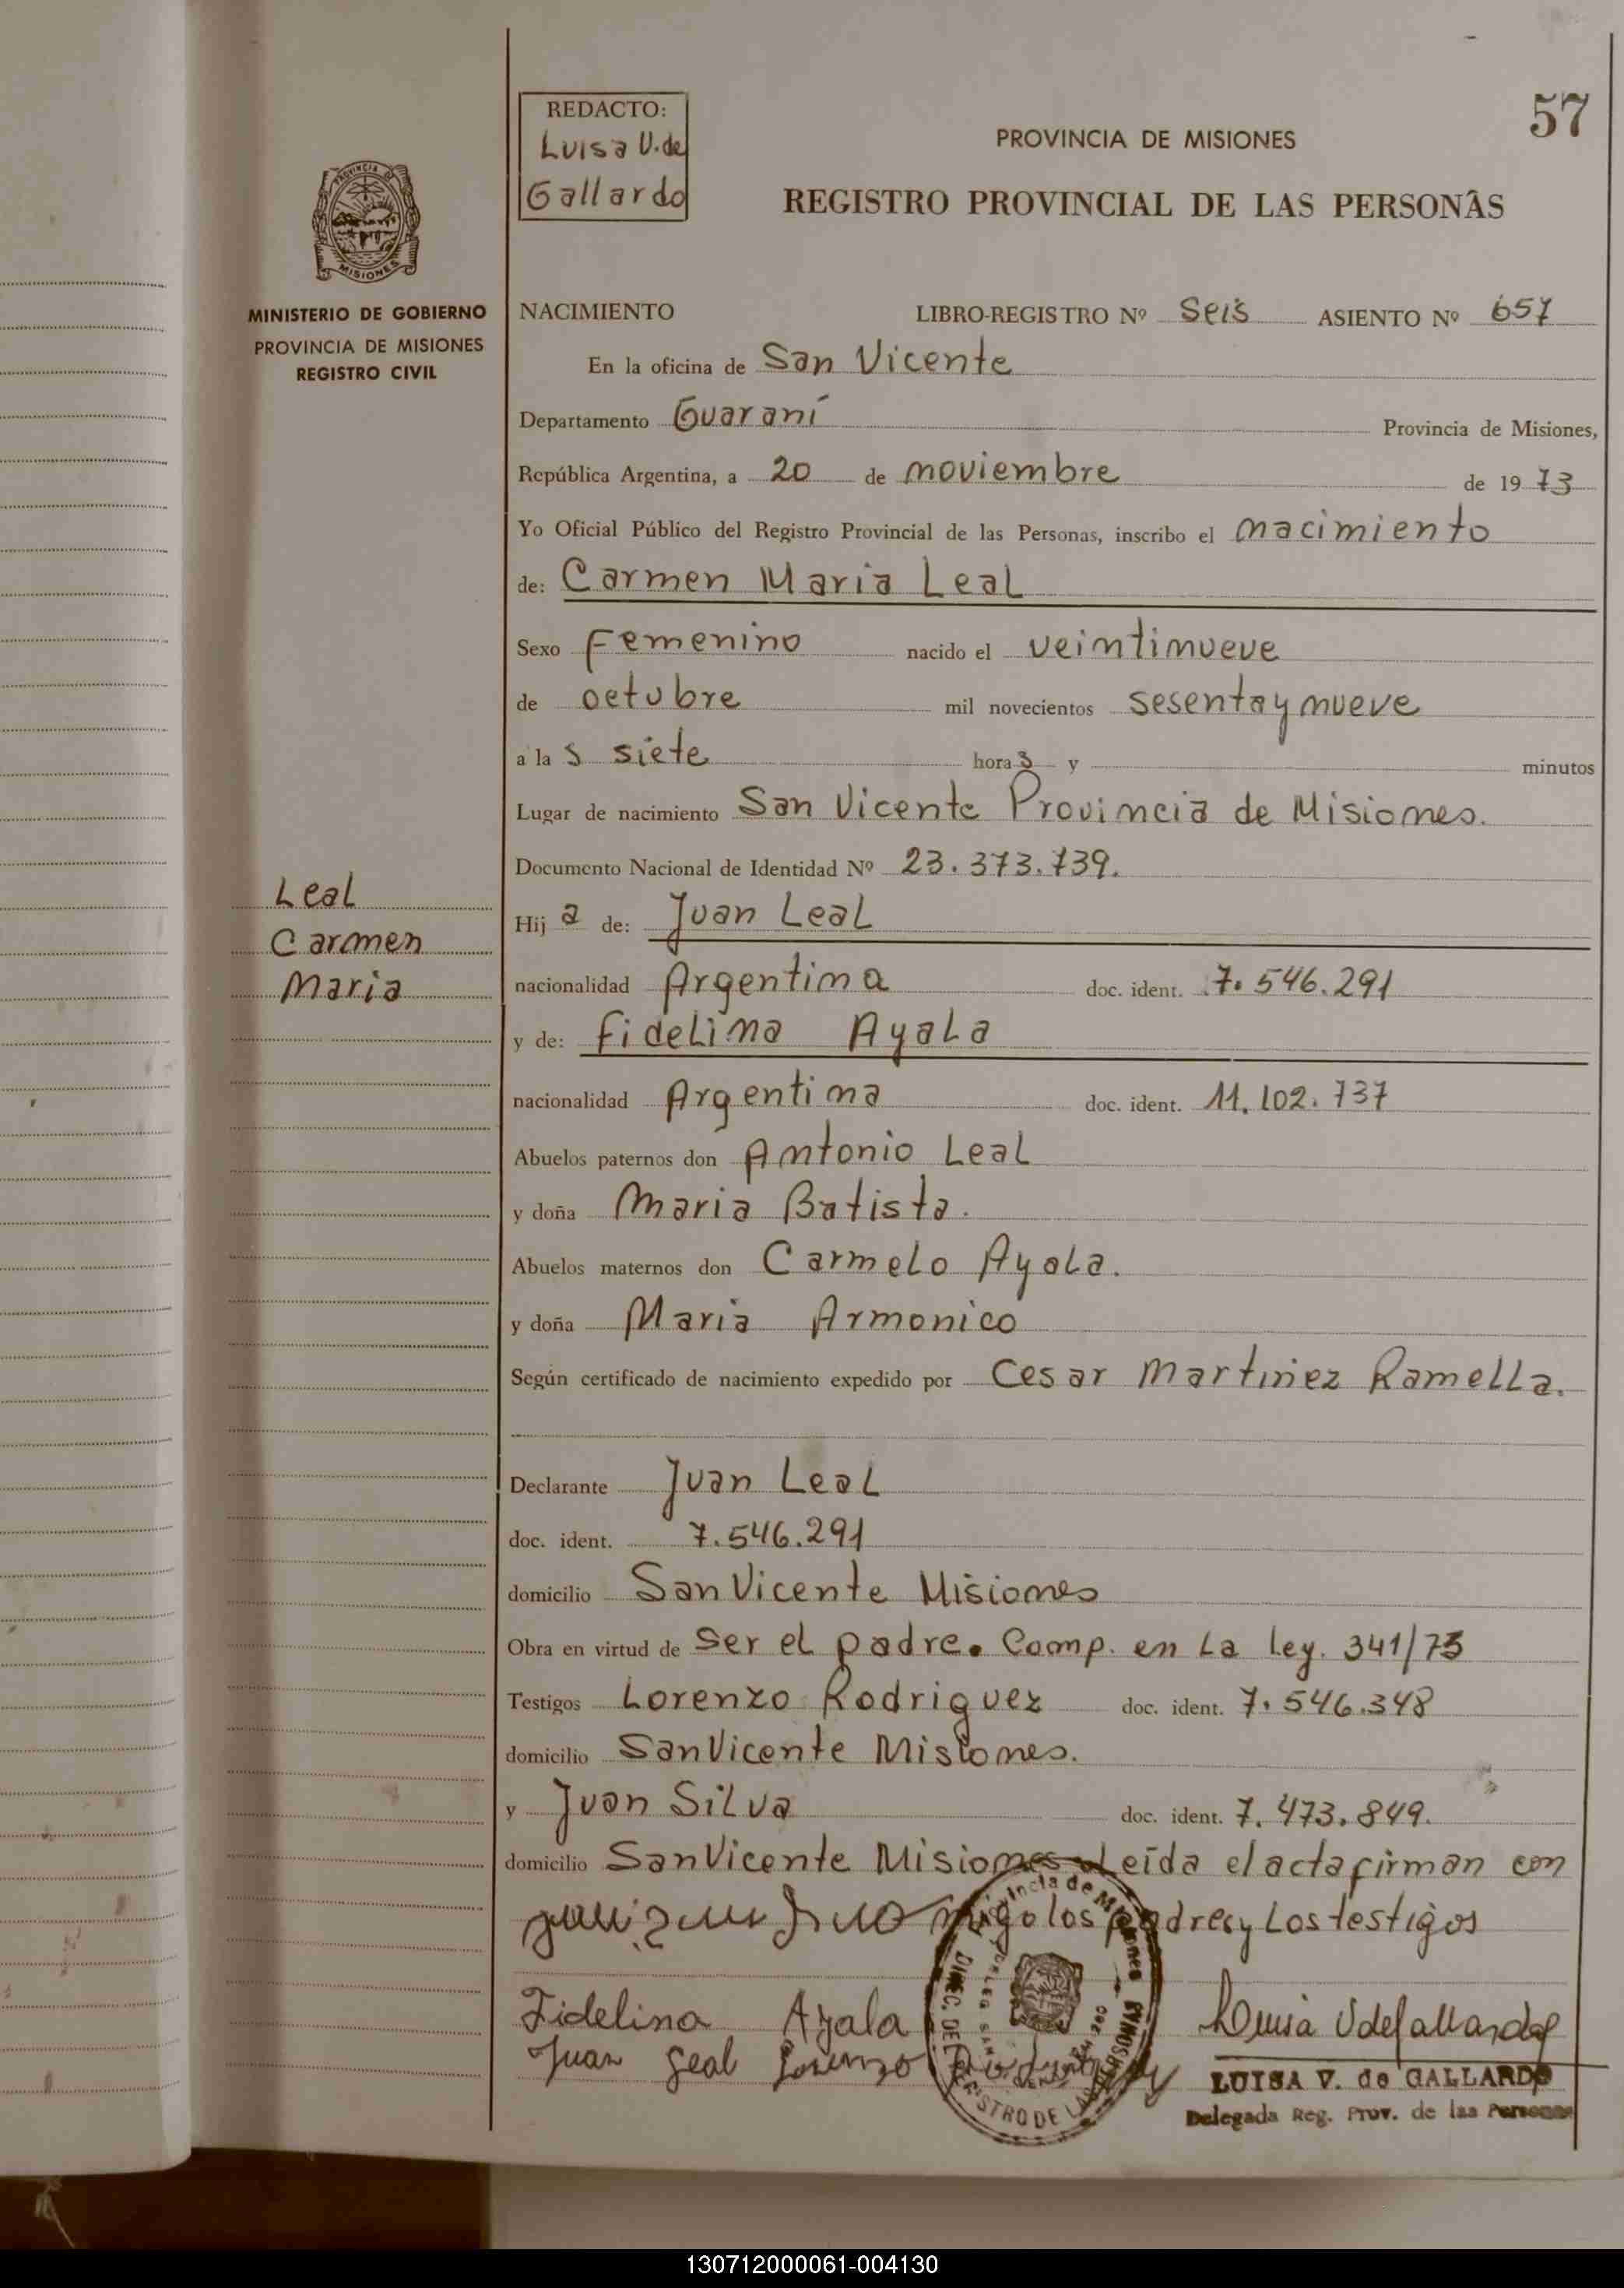 57
REDACTO:
Luisa V. de
Gallardo
PROVINCIA DE MISIONES
REGISTRO PROVINCIAL DE LAS PERSONAS
PROVINCIA DE
MISIONES
MINISTERIO DE GOBIERNO
PROVINCIA DE MISIONES
REGISTRO CIVIL
NACIMIENTO LIBRO-REGISTRO Nº Seis ASIENTO Nº 657
En la oficina de San Vicente
Departamento Guaraní Provincia de Misiones,
República Argentina, a 20 de noviembre de 1973
Yo Oficial Público del Registro Provincial de las Personas, inscribo el nacimiento
de: Carmen Maria Leal
Sexo Femenino nacido el veintinueve
de octubre mil novecientos sesenta y nueve
a las siete horas y minutos
Lugar de nacimiento San Vicente Provincia de Misiones.
Documento Nacional de Identidad Nº 23.373.739.
Leal
Carmen
Maria
Hija de: Juan Leal
nacionalidad Argentina doc. ident. 7.546.291
y de: Fidelina Ayala
nacionalidad Argentina doc. ident. 11.102.737
Abuelos paternos don Antonio Leal
y doña Maria Batista.
Abuelos maternos don Carmelo Ayala.
y doña Maria Armonico
Según certificado de nacimiento expedido por Cesar Martinez Ramella.
Declarante Juan Leal
doc. ident. 7.546.291
domicilio San Vicente Misiones
Obra en virtud de ser el padre. Comp. en la ley. 341/73
Testigos Lorenzo Rodriguez doc. ident. 7.546.348
domicilio San Vicente Misiones.
y Juan Silva doc. ident. 7.473.849.
domicilio San Vicente Misiones Leída el acta firman con
migo los padres y los testigos
Fidelina Ayala
Juan Leal Lorenzo
LUISA V. de GALLARDO
Delegada Reg. Prov. de las Personas
130712000061-004130